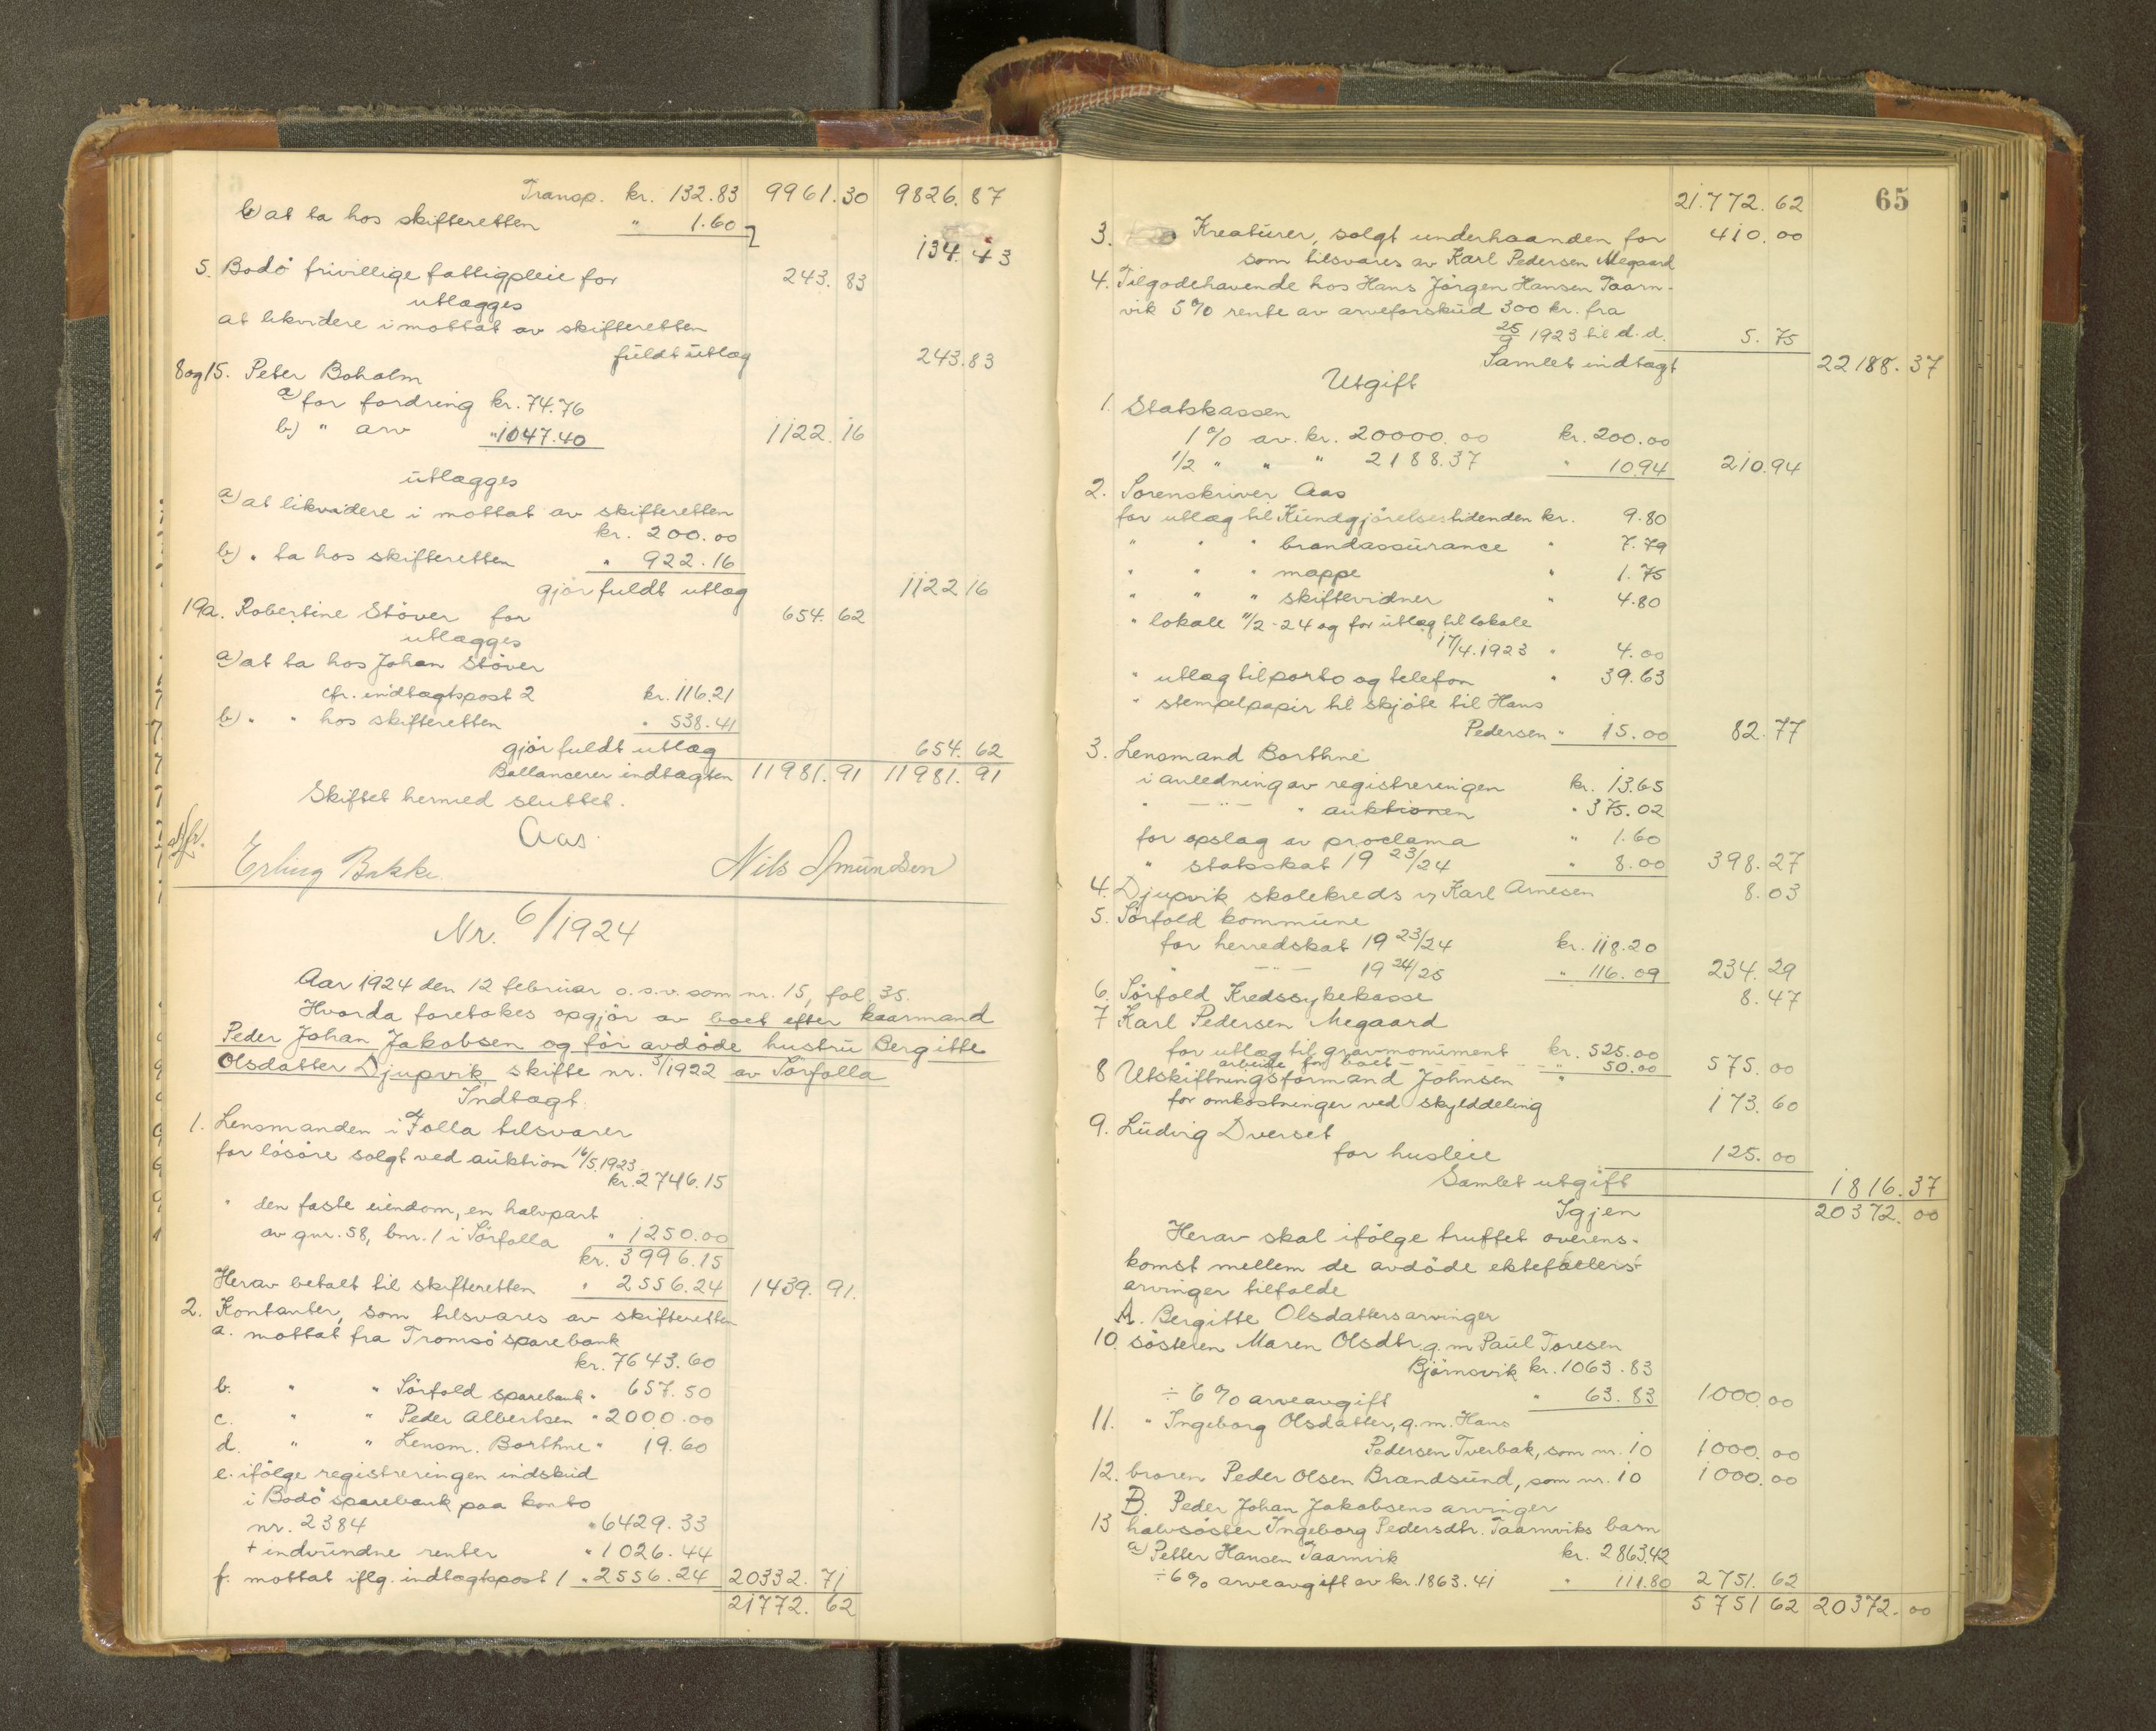 Transp. kr. 132.83 9961.30 9826.87
b) at ta hos skifteretten " 1.60
134.43
5. Bodö frivillige fattigpleie for 243.83
utlægges
at likvidere i mottat av skifteretten
fuldt utlæg 243.83
8 og 15. Peter Boholm
a) for fordring kr. 74.76
b) " arv " 1047.40 1122.16
utlægges
a) at likvidere i mottat av skifteretten
kr. 200.00
b) " ta hos skifteretten " 922.16
gjör fuldt utlæg 1122.16
19a. Robertine Stöver for 654.62
utlægges
a) at ta hos Johan Stöver
cfr. indtægtspost 2 kr. 116.21
b) " " hos skifteretten " 538.41
gjör fuldt utlæg 654.62
Ballancerer indtægten 11981.91 11981.91
Skiftet hermed sluttet.
Aas.
Erling Bakke Nils Amundsen
Nr. 6/1924
Aar 1924 den 12 februar o.s.v. som nr. 15, fol. 35.
Hvorda foretokes opgjör av boet efter kaarmand
Peder Johan Jakobsen og för avdöde hustru Bergitte
Olsdatter Djupvik, skifte nr. 3/1922 av Sörfolla
Indtægt.
1. Lensmanden i Folla tilsvarer
for lösöre solgt ved auktion 16/5.1923
kr. 2746.15
" den faste eiendom, en halvpart
av gnr. 58, bnr. 1 i Sörfolla " 1250.00
kr. 3996.15
Herav betalt til skifteretten " 2556.24 1439.91.
2. Kontanter, som tilsvares av skifteretten
a. mottat fra Tromsö sparebank
kr. 7643.60
b. " " Sörfold sparebank " 657.50
c. " " Peder Albertsen " 2000.00
d. " " Lensm. Borthne " 19.60
e. ifölge registreringen indskud
i Bodö sparebank paa konto
nr. 2384 " 6429.33
+ indvundne renter " 1026.44
f. mottat iflg. indtægtspost 1 " 2556.24 20332.71
21772.62
65
21.772.62
3. Kreaturer, solgt underhaanden for 410.00
som tilsvares av Karl Pedersen Megaard
4. Tilgodehavende hos Hans Jörgen Hansen Taarn-
vik 5% rente av arveforskud 300 kr. fra
25/9 1923 til d.d. 5.75
Samlet indtægt 22188.37
Utgift
1. Statskassen
1% av. kr. 20000.00 kr. 200.00
1/2 " " " 2188.37 " 10.94 210.94
2. Sorenskriver Aas
for utlæg til Kundgjörelsestidenden kr. 9.80
" " " brandassurance " 7.79
" " " mappe " 1.75
" " " skiftevidner " 4.80
" lokale 11/2-24 og for utlæg til lokale
17/4.1923 " 4.00
" utlæg til porto og telefon " 39.63
" stempelpapir til skjöte til Hans
Pedersen " 15.00 82.77
3. Lensmand Borthne
i anledning av registreringen kr. 13.65
" — " — " auktionen " 375.02
for opslag av proclama " 1.60
" statsskat 19 23/24 " 8.00 398.27
4. Djupvik skolekreds v/ Karl Arnesen 8.03
5. Sörfold kommune
for herredskat 19 23/24 kr. 118.20
" — " — 19 24/25 " 116.09 234.29
6. Sörfold Kredssykekasse 8.47
7 Karl Pedersen Megaard
for utlæg til gravmonument kr. 525.00
" arbeide for boet — " 50.00 575.00
8 Utskiftningsformand Johnsen
for omkostninger ved skylddeling 173.60
9. Ludvig Dverset
for husleie 125.00
Samlet utgift 1816.37
Igjen 20372.00
Herav skal ifölge truffet overens-
komst mellem de avdöde ektefællers
arvinger tilfalde
A. Bergitte Olsdatters arvinger
10. sösteren Maren Olsdtr. g.m Paul Toresen
Björnsvik kr. 1063.83
÷ 6% arveavgift " 63.83 1000.00
11. " Ingeborg Olsdatter, g.m. Hans
Pedersen Tverbak, som nr. 10 1000.00
12. broren Peder Olsen Brændsund, som nr. 10 1000.00
B. Peder Johan Jakobsens arvinger
13 halvsöster Ingeborg Pedersdtr. Taarnviks barn
a) Petter Hansen Taarnvik kr. 2863.42
÷ 6% arveavgift av kr. 1863.41 " 111.80 2751.62
5751.62 20372.00